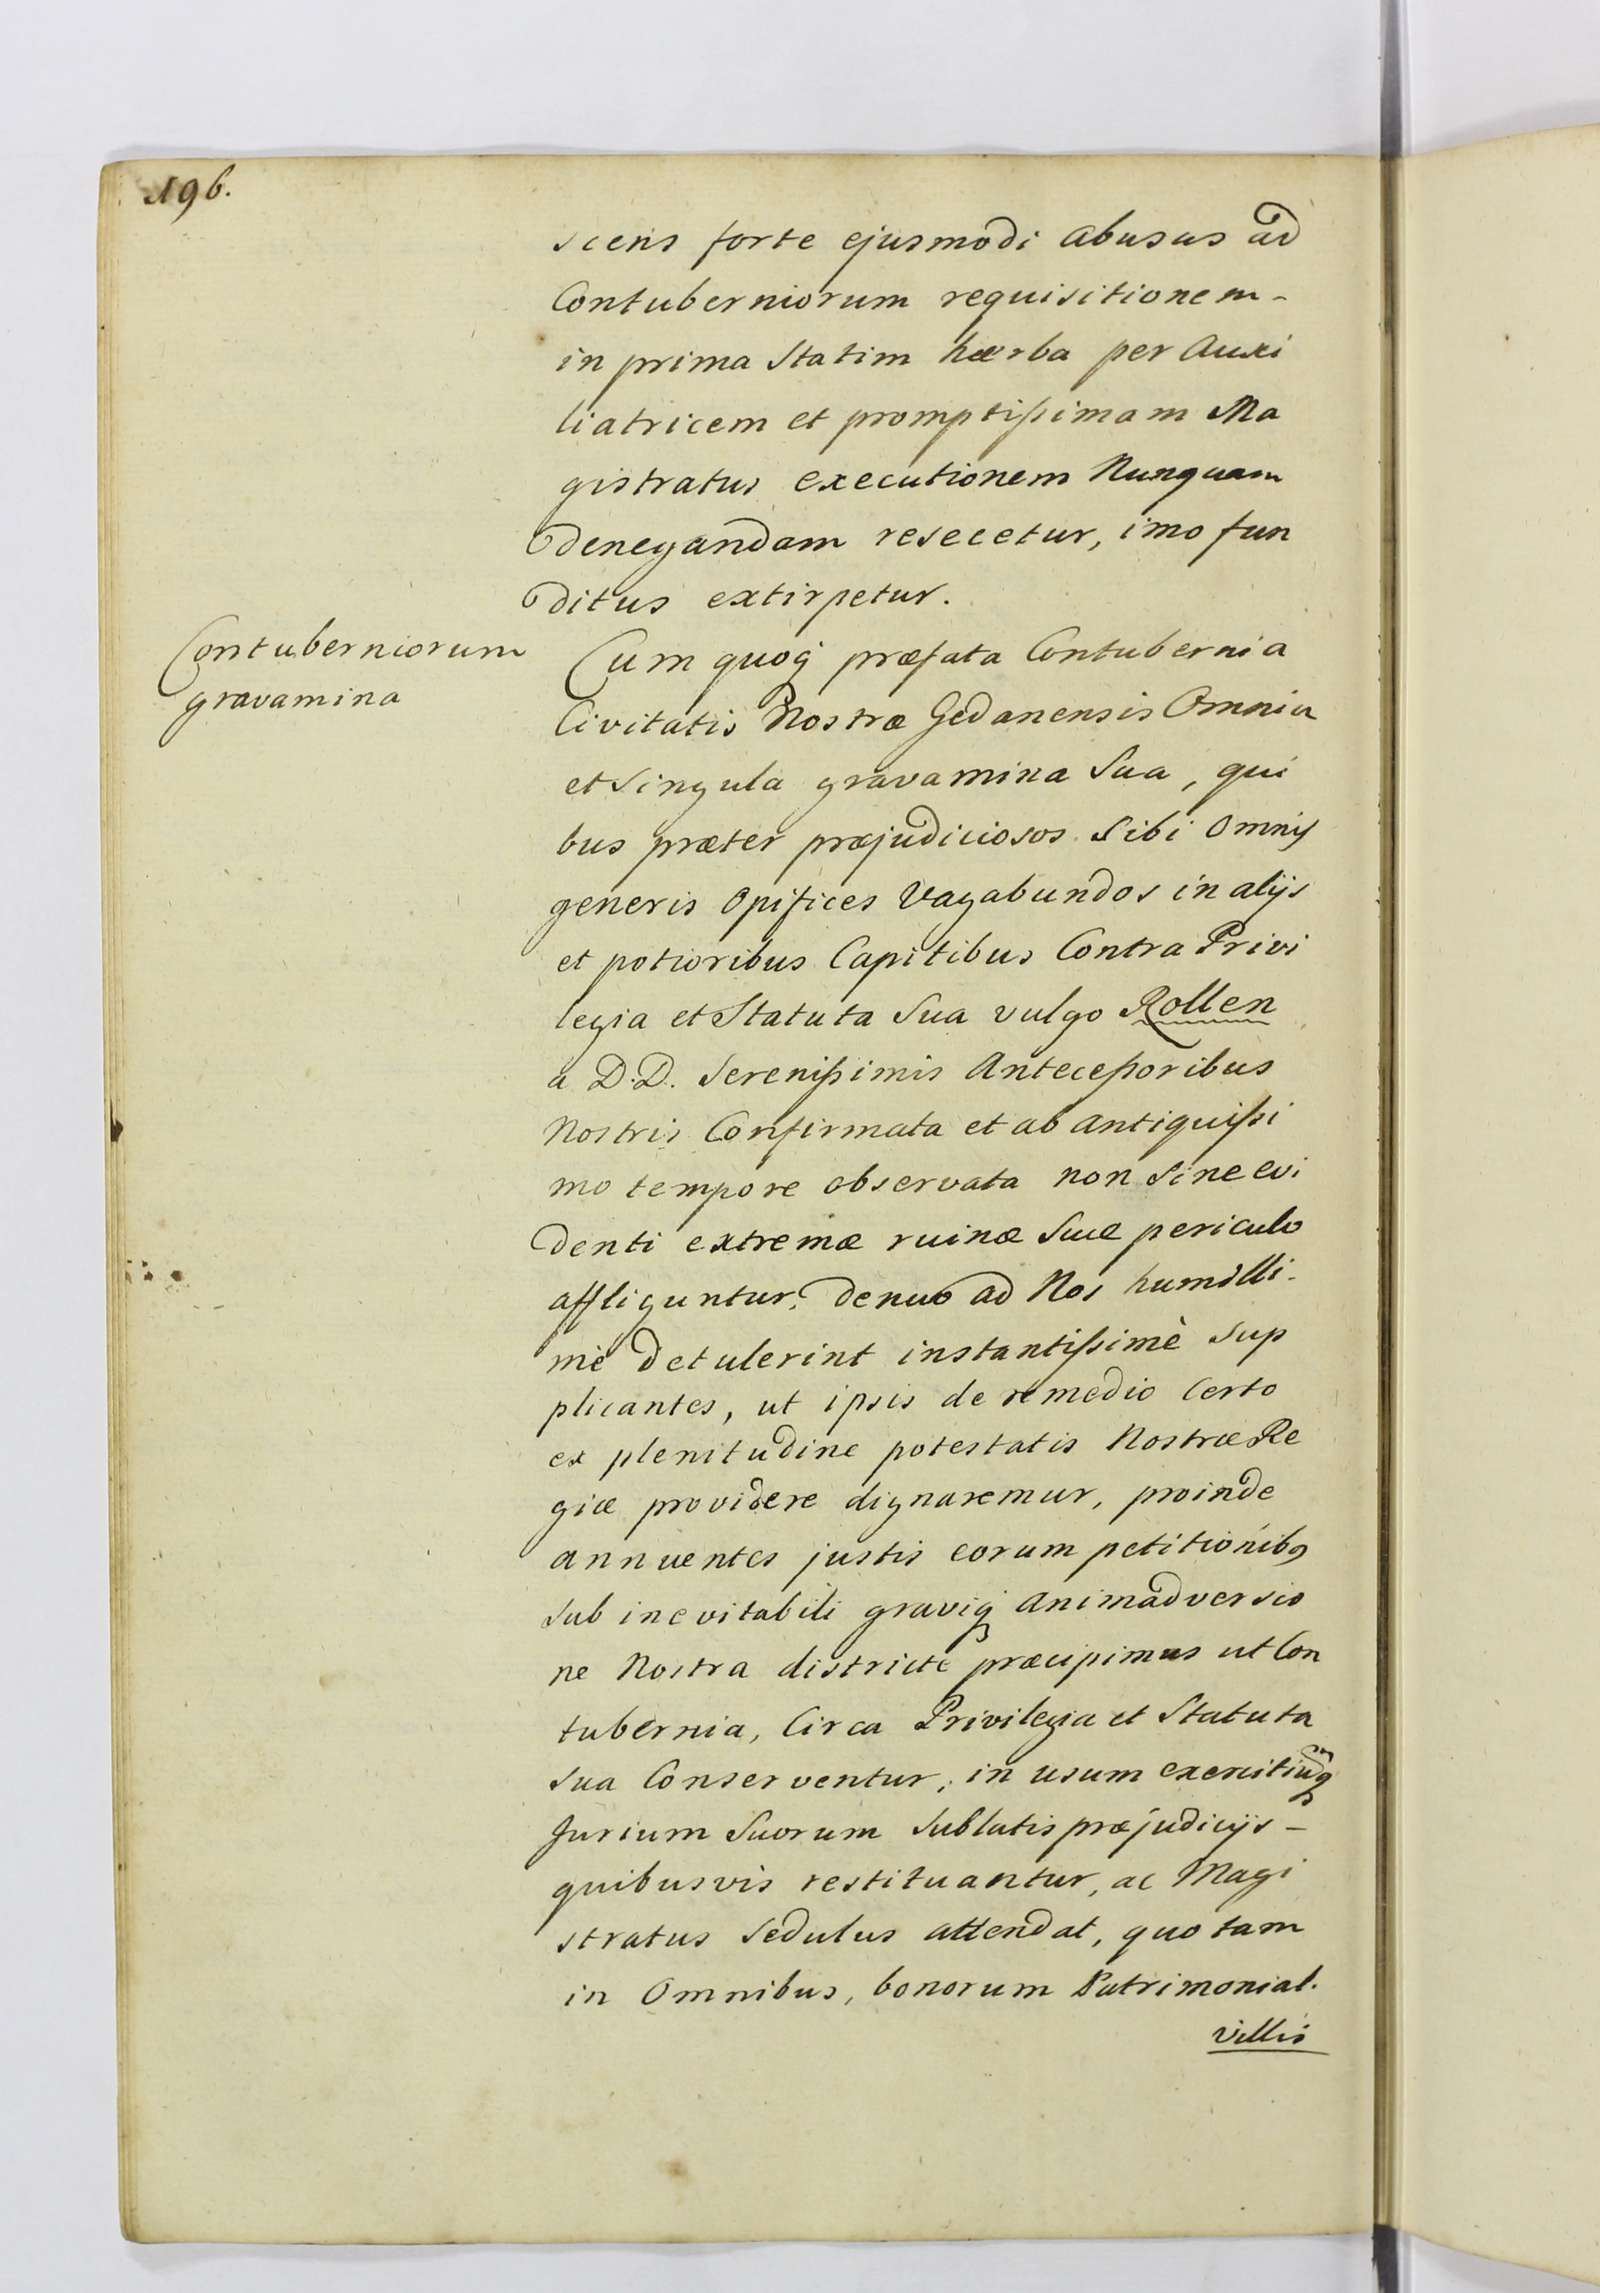 196.
scens forte ejusmodi abusus ad
Contuberniorum requisitionem-
in prima Statim haerba per Auxi
liatricem et promptißimam Ma
gistratus executionem Nunquam
denegandam resecetur, imo fun
ditus extirpetur.
Contuberniorum
gravamina
Cum quoq præfata Contubernia
Civitatis Nostræ Gedanensis Omnia
et Singula gravamina Sua, qui
bus præter præjudiciosos Sibi Omnis
generis Opifices Vagabundos in alijs
et potioribus Capitibus Contra Privi
legia et Statuta Sua vulgo Rollen
a D.D. Serenißimis Anteceßoribus
Nostris Confirmata et ab antiquißi
mo tempore observata non Sine evi
denti extremæ ruinæ Suæ periculo
affliguntur, denuo ad Nos humilli-
mè detulerint instantißimè Sup
plicantes, ut ipsis de remedio Certo
ex plenitudine potestatis Nostræ Re
giæ providere dignaremur, proinde
annuentes justis eorum petitionibq
Sub inevitabili graviq animadversio
ne Nostra districtè præcipimus ut Con
tubernia, Circa Privilegia et Statuta
Sua Conserventur, in usum exercitiumq
Jurium Suorum Sublatis præjudicijs-
quibusvis restituantur, ac Magi
stratus Sedulus attendat, quo tam
in Omnibus, bonorum Patrimonial.
villis